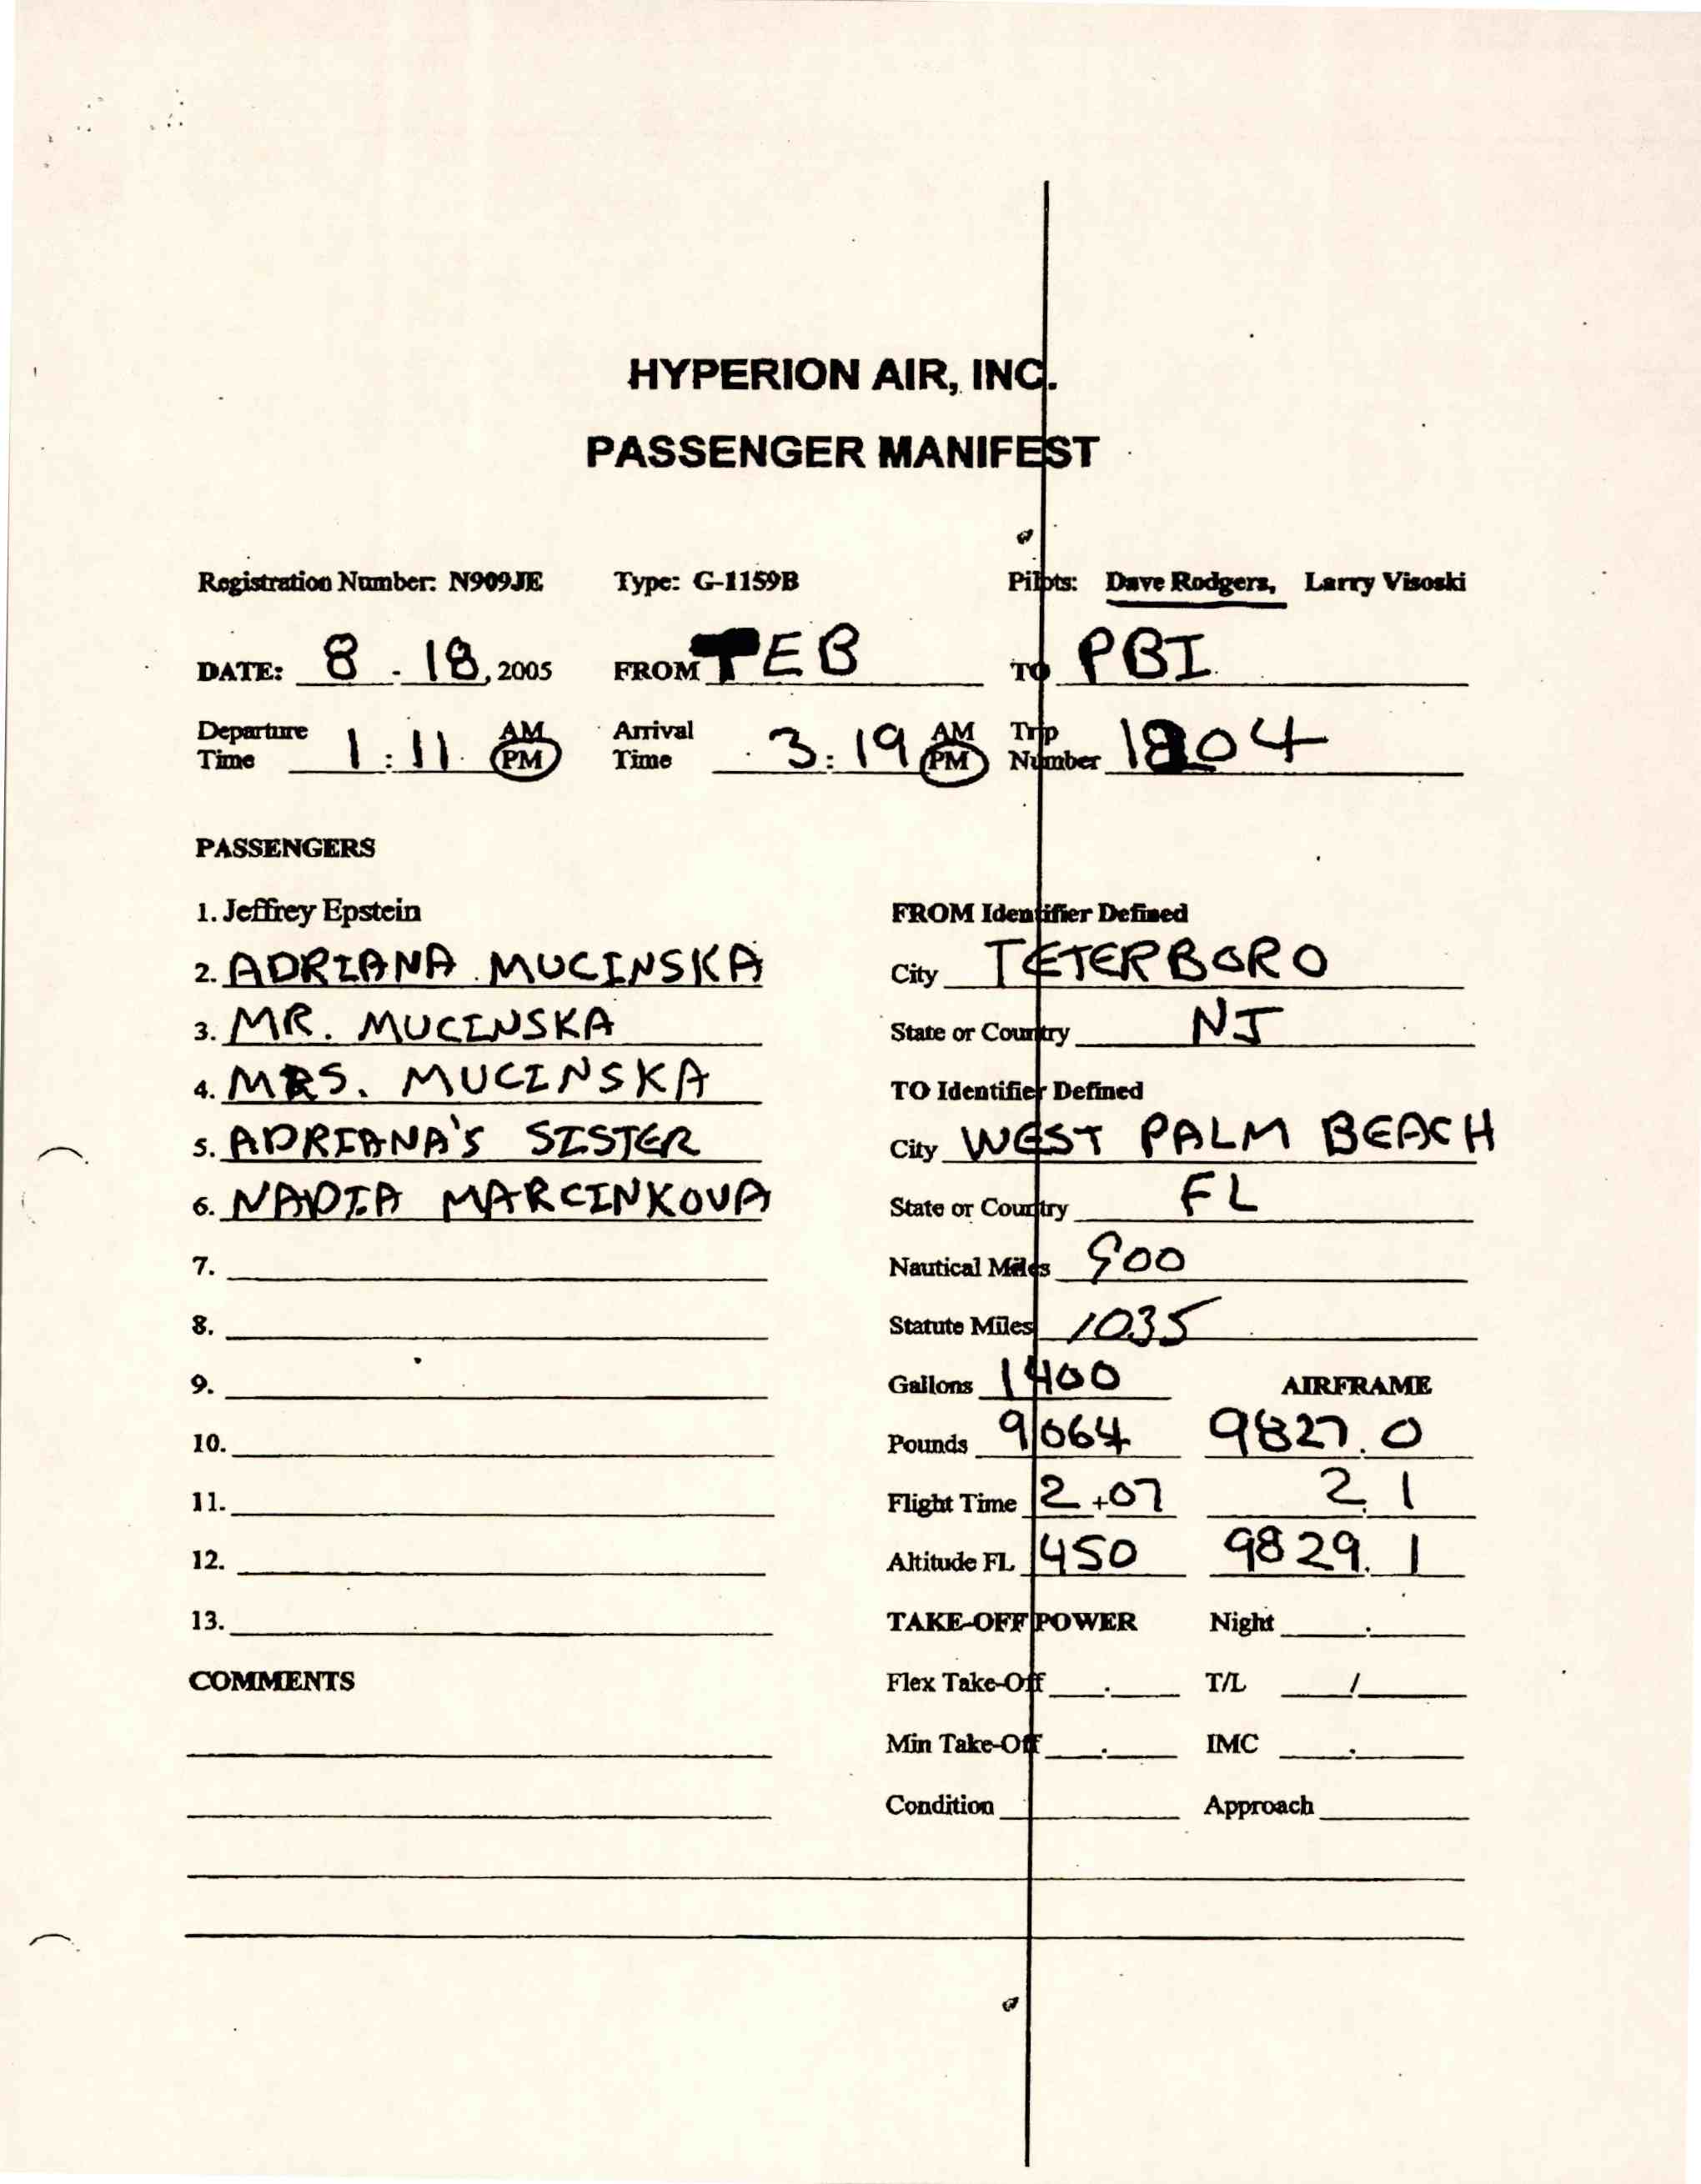 HYPERION AIR, INC.
PASSENGER MANIFEST
Registration Number: N909JE Type: G-1159B Pilots: Dave Rodgers, Larry Visoski
DATE: 8 - 18, 2005 FROM TEB TO PBI
Departure Time 1:11 AM PM Arrival Time 3:19 AM PM Trip Number 1804
PASSENGERS
1. Jeffrey Epstein FROM Identifier Defined
2. ADRIANA MUCINSKA City TETERBORO
3. MR. MUCINSKA State or Country NJ
4. MRS. MUCINSKA TO Identifier Defined
5. ADRIANA'S SISTER City WEST PALM BEACH
6. NADIA MARCINKOVA State or Country FL
7. Nautical Miles 900
8. Statute Miles 1035
9. Gallons 1400 AIRFRAME
10. Pounds 9064 9827.0
11. Flight Time 2+07 2.1
12. Altitude FL 450 9829.1
13. TAKE-OFF POWER Night .
COMMENTS Flex Take-Off . T/L /
Min Take-Off . IMC .
Condition Approach